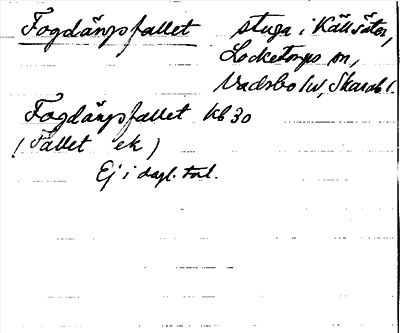 Fogdängsfallet stuga i Källsäter,
Locketorps sn,
Vadsbo hd, Skarab l.
Fogdängsfallet kb 30
(Fallet ek)
Ej i dagl. tal.